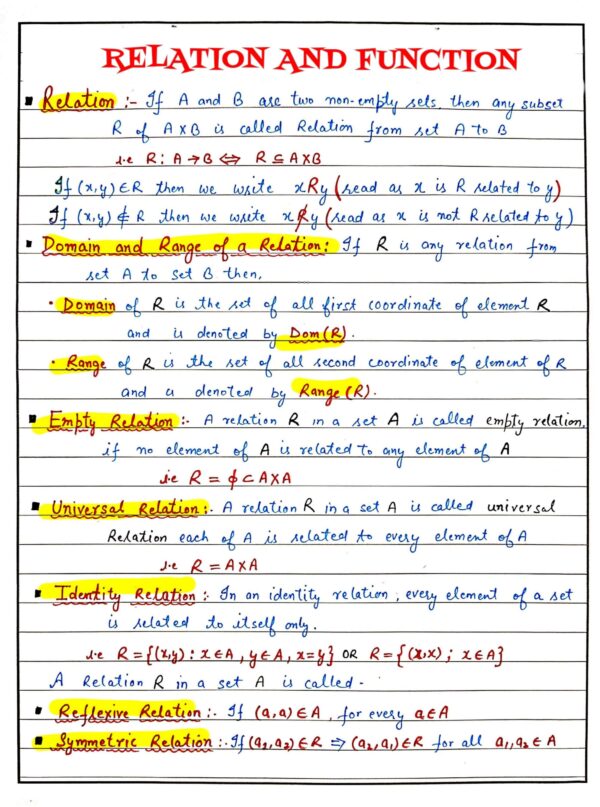 RELATION AND FUNCTION
▪ Relation :- If A and B are two non-empty sets, then any subset
R of A×B is called Relation from set A to B
i.e R: A → B ⇔ R ⊆ A×B
If (x,y) ∈ R then we write xRy (read as x is R related to y)
If (x,y) ∉ R then we write xR̸y (read as x is not R related to y)
▪ Domain and Range of a Relation: If R is any relation from
set A to set B then,
• Domain of R is the set of all first coordinate of element R
and is denoted by Dom(R).
• Range of R is the set of all second coordinate of element of R
and is denoted by Range(R).
▪ Empty Relation :- A relation R in a set A is called empty relation,
if no element of A is related to any element of A
i.e R = ϕ ⊂ A×A
▪ Universal Relation :- A relation R in a set A is called universal
Relation each of A is related to every element of A
i.e R = A×A
▪ Identity Relation : In an identity relation, every element of a set
is related to itself only.
i.e R = {(x,y) : x ∈ A, y ∈ A, x=y} OR R = {(x,x) ; x ∈ A}
A Relation R in a set A is called -
▪ Reflexive Relation :- If (a,a) ∈ A, for every a ∈ A
▪ Symmetric Relation :- If (a₁,a₂) ∈ R ⇒ (a₂,a₁) ∈ R for all a₁,a₂ ∈ A